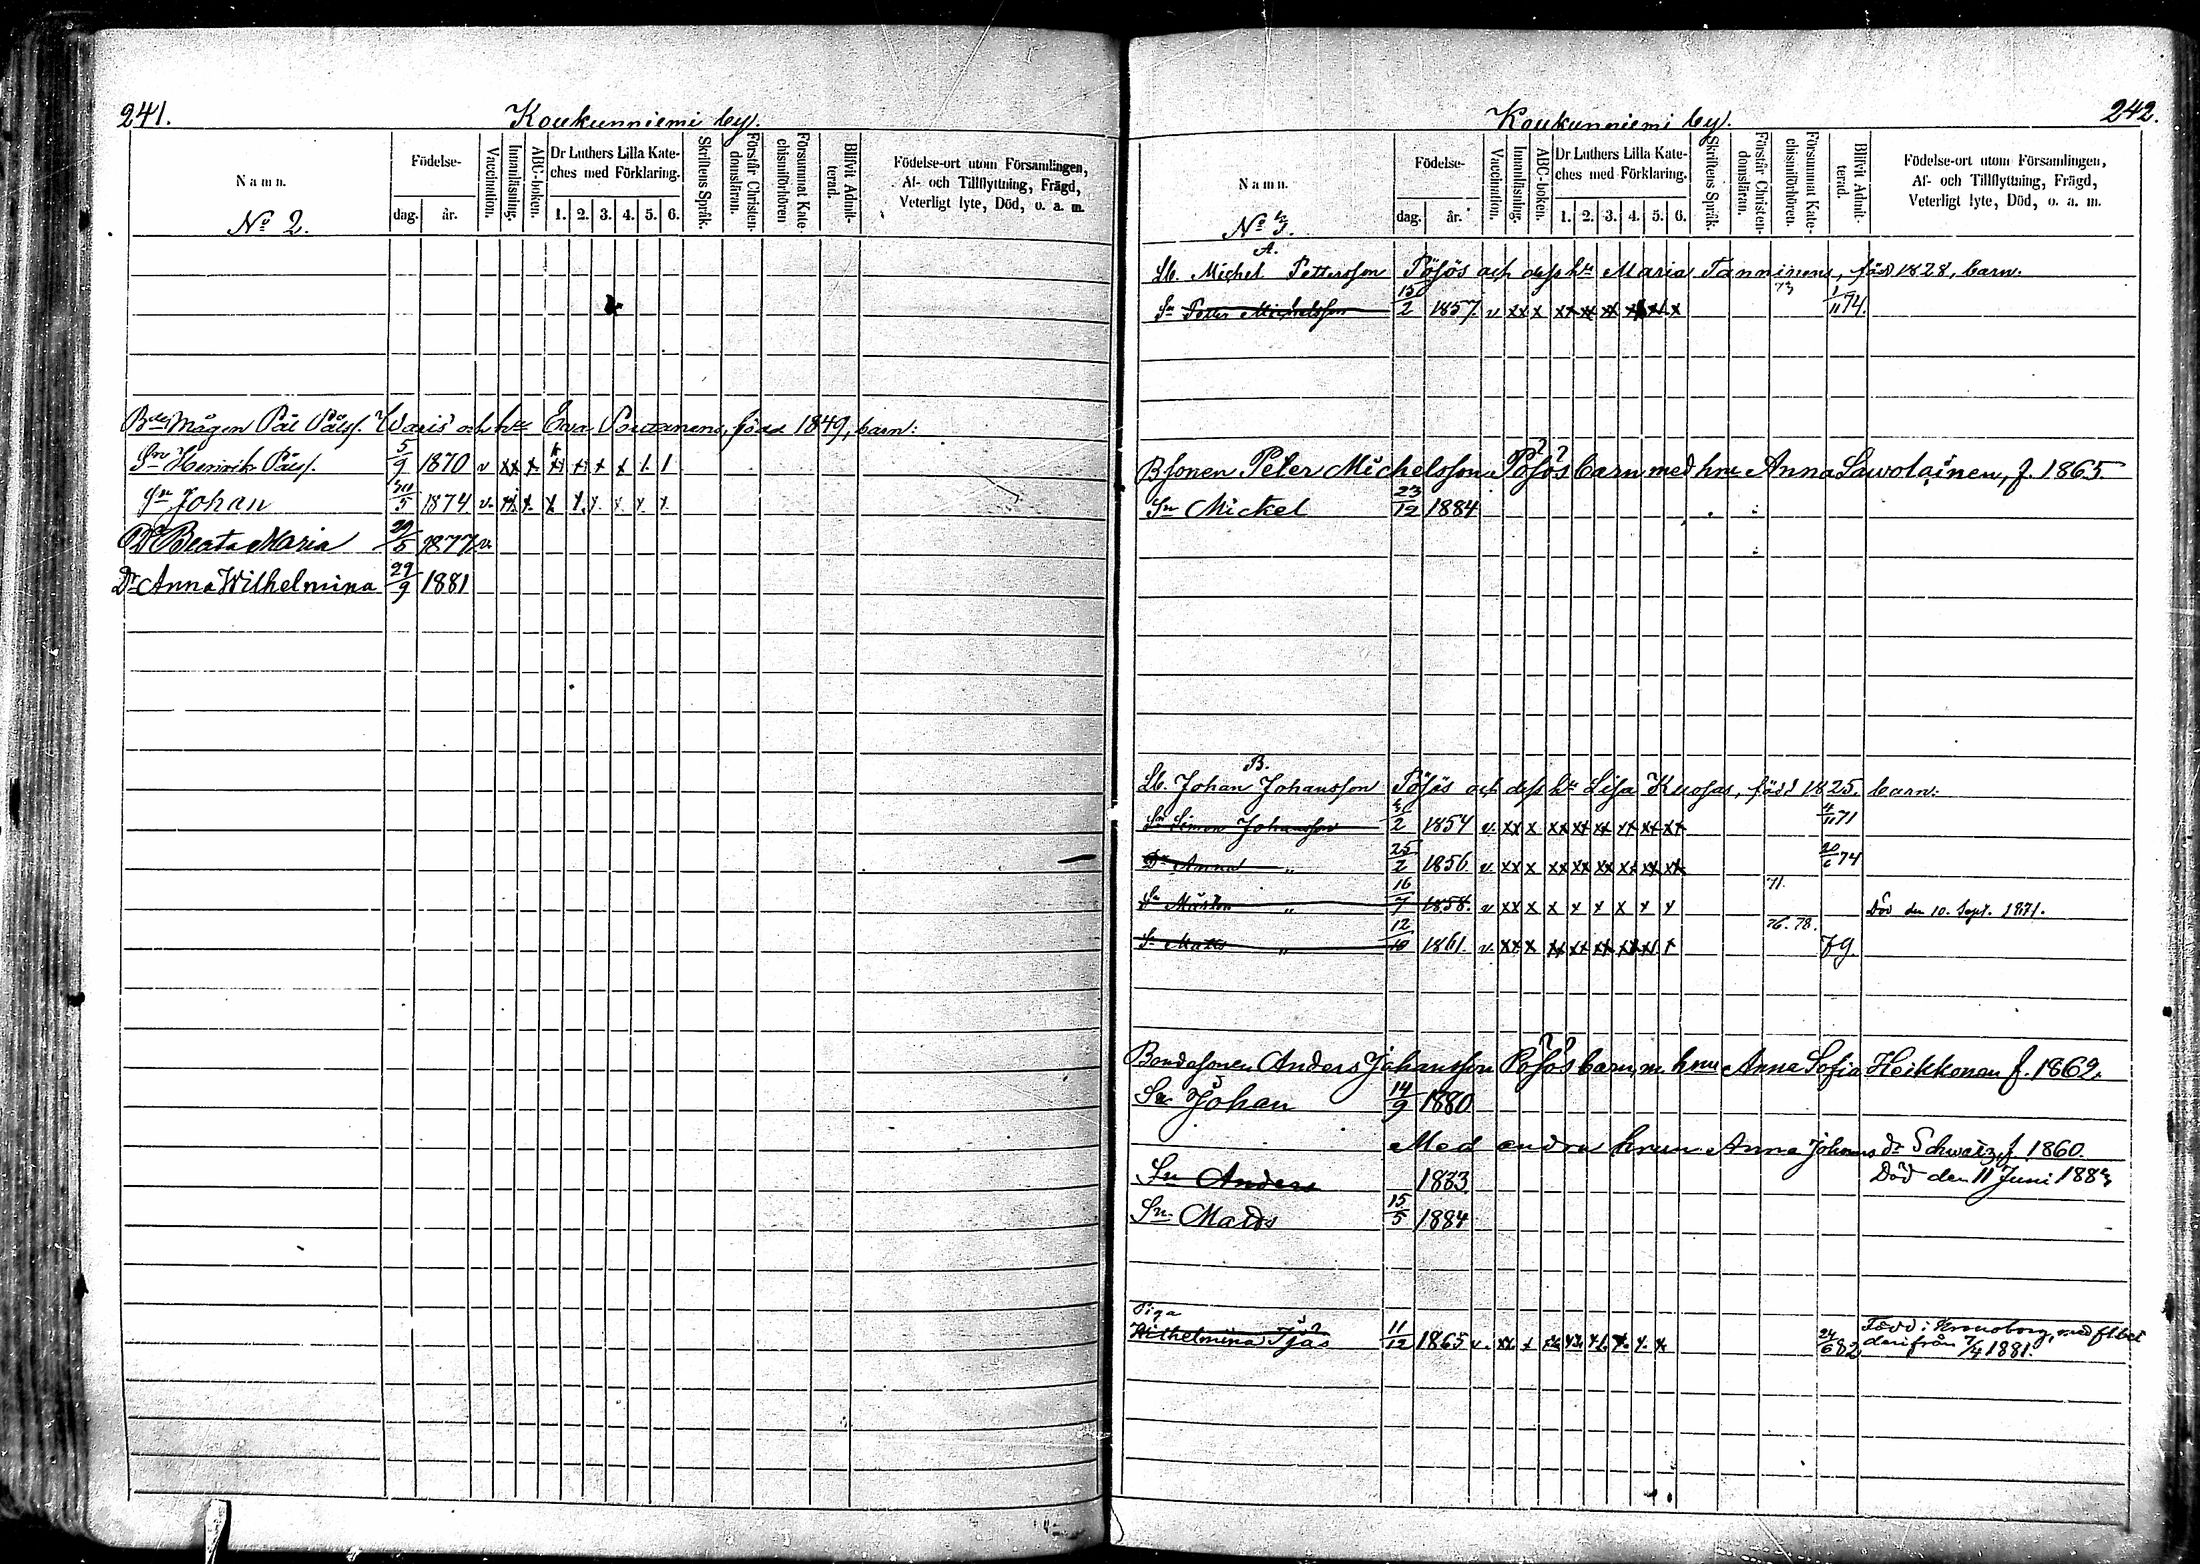 241.
Koukunniemi by.
Namn.
Födelse-
dag. år.
Vaccination.
Innanläsning.
ABC-boken.
Dr Luthers Lilla Kate-
ches med Förklaring.
1. 2. 3. 4. 5. 6.
Skriftens Språk.
Förstår Christen-
domsläran.
Försummat Kate-
chismiförhören
Blifvit Admit-
terad.
Födelse-ort utom Församlingen,
Af- och Tillflyttning, Frägd,
Veterligt lyte, Död, o. a. m.
No 2.
Bde Mågen Pål Pålss. Waris och hu Eva Poutanens, född 1849, barn:
Sn Henrik Pålss. 5/9 1870 v xx x x x x x 1 1
Sn Johan 30/5 1874 v. x x. x x. x. x x. x
Dr Beata Maria 29/5 1877 v.
Dr Anna Wilhelmina 29/9 1881
242.
Koukunniemi by.
Namn.
Födelse-
dag. år.
Vaccination.
Innanläsning.
ABC-boken.
Dr Luthers Lilla Kate-
ches med Förklaring.
1. 2. 3. 4. 5. 6.
Skriftens Språk.
Förstår Christen-
domsläran.
Försummat Kate-
chismiförhören.
Blifvit Admit-
terad.
Födelse-ort utom Församlingen,
Af- och Tillflyttning, Frägd,
Veterligt lyte, Död, o. a. m.
No 3.
A.
Lb. Michel Pettersson Pösös och dess hu Maria Tanninens, född 1828, barn.
Sn Petter Michelsson 15/2 1857 v xx x xx xx xx xx xx x 73 1/11 74.
Bsonen Peter Michelsson Pösös barn med hru Anna Sawolainen, f. 1865.
Sn Mickel 23/12 1884
B.
Lb. Johan Johansson Pösös och dess hu Lisa Kuosas, född 1825. barn:
Sn Simon Johansson 3/2 1854 v. xx x xx xx xx xx xx xx 4/11 71
Dr Anna " 25/2 1856. v. xx x xx xx xx xx xx xx 20/6 74
Sn " 16/7 1858. v xx x x x x x x x 71. Död den 10. Sept. 1871.
Sn Matts " 12/10 1861. v. xx x xx xx xx xx xx x 76. 78. 79.
Bondesonen Anders Johansson Pösös barn m. hru Anna Sofia Heikkonen f. 1862.
Sn Johan 14/9 1880
Med andra hrun Anna Johans dr Schwatz, f. 1860.
Sn Anders 1883. Död den 11 Juni 1883
Sn Matts 15/5 1884
Piga
Wilhelmina Ijäs 11/12 1865 v. xx. x xx. xx. x1. x. x. x. 24/6 82 Född i Kronoborg, med flbet
derifrån 7/4 1881.